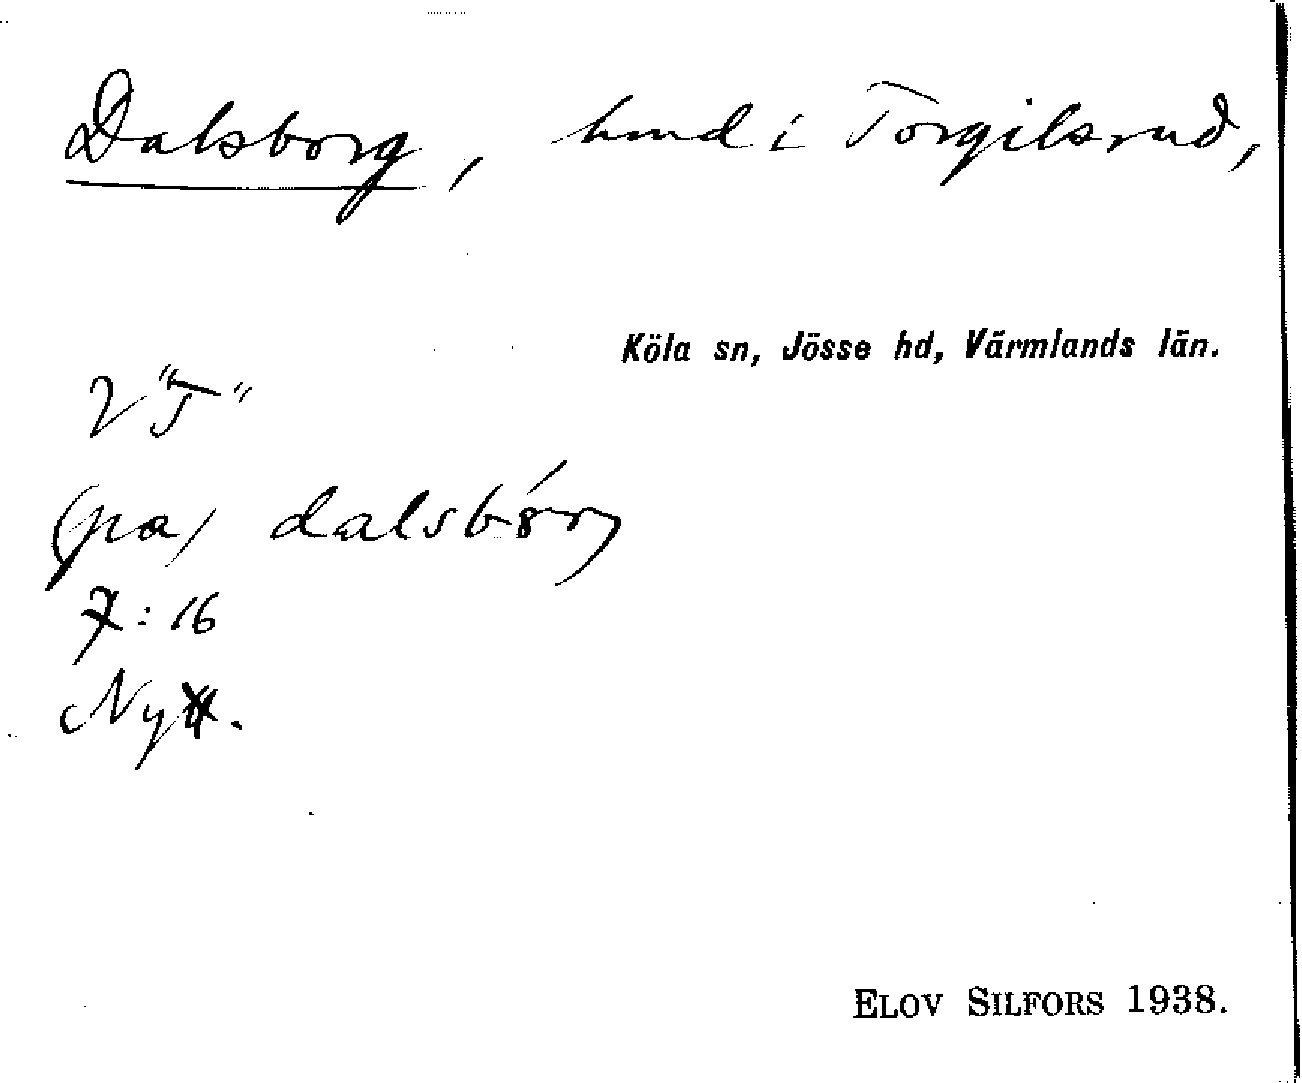 Dalsborg, hmd i Torgilsrud,
Köla sn, Jösse hd, Värmlands län.
V "T"
(pa) dalsbórj
7:16
Ny
ELOV SILFORS 1938.